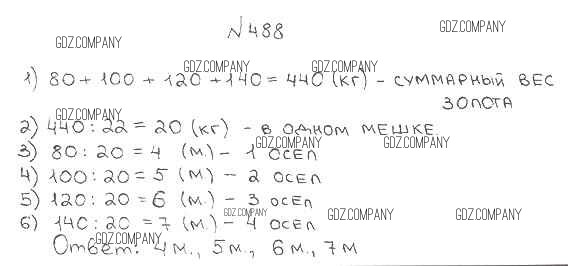 №488
GDZ.COMPANY
GDZ.COMPANY
GDZ.COMPANY
GDZ.COMPANY
1) 80 + 100 + 120 + 140 = 440 (кг) - СУММАРНЫЙ ВЕС
ЗОЛОТА
GDZ.COMPANY
2) 440 : 22 = 20 (кг) - В ОДНОМ МЕШКЕ.
GDZ.COMPANY
GDZ.COMPANY
3) 80 : 20 = 4 (м.) - 1 ОСЕЛ
4) 100 : 20 = 5 (м.) - 2 ОСЕЛ
5) 120 : 20 = 6 (м.) - 3 ОСЕЛ
GDZ.COMPANY
GDZ.COMPANY
GDZ.COMPANY
6) 140 : 20 = 7 (м.) - 4 ОСЕЛ
GDZ.COMPANY
Ответ: 4 м., 5 м., 6 м., 7 м